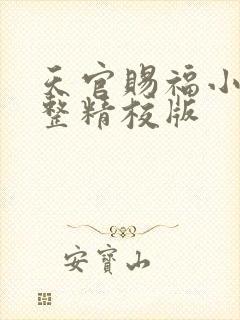 天官赐福小
整精校版
安寳山